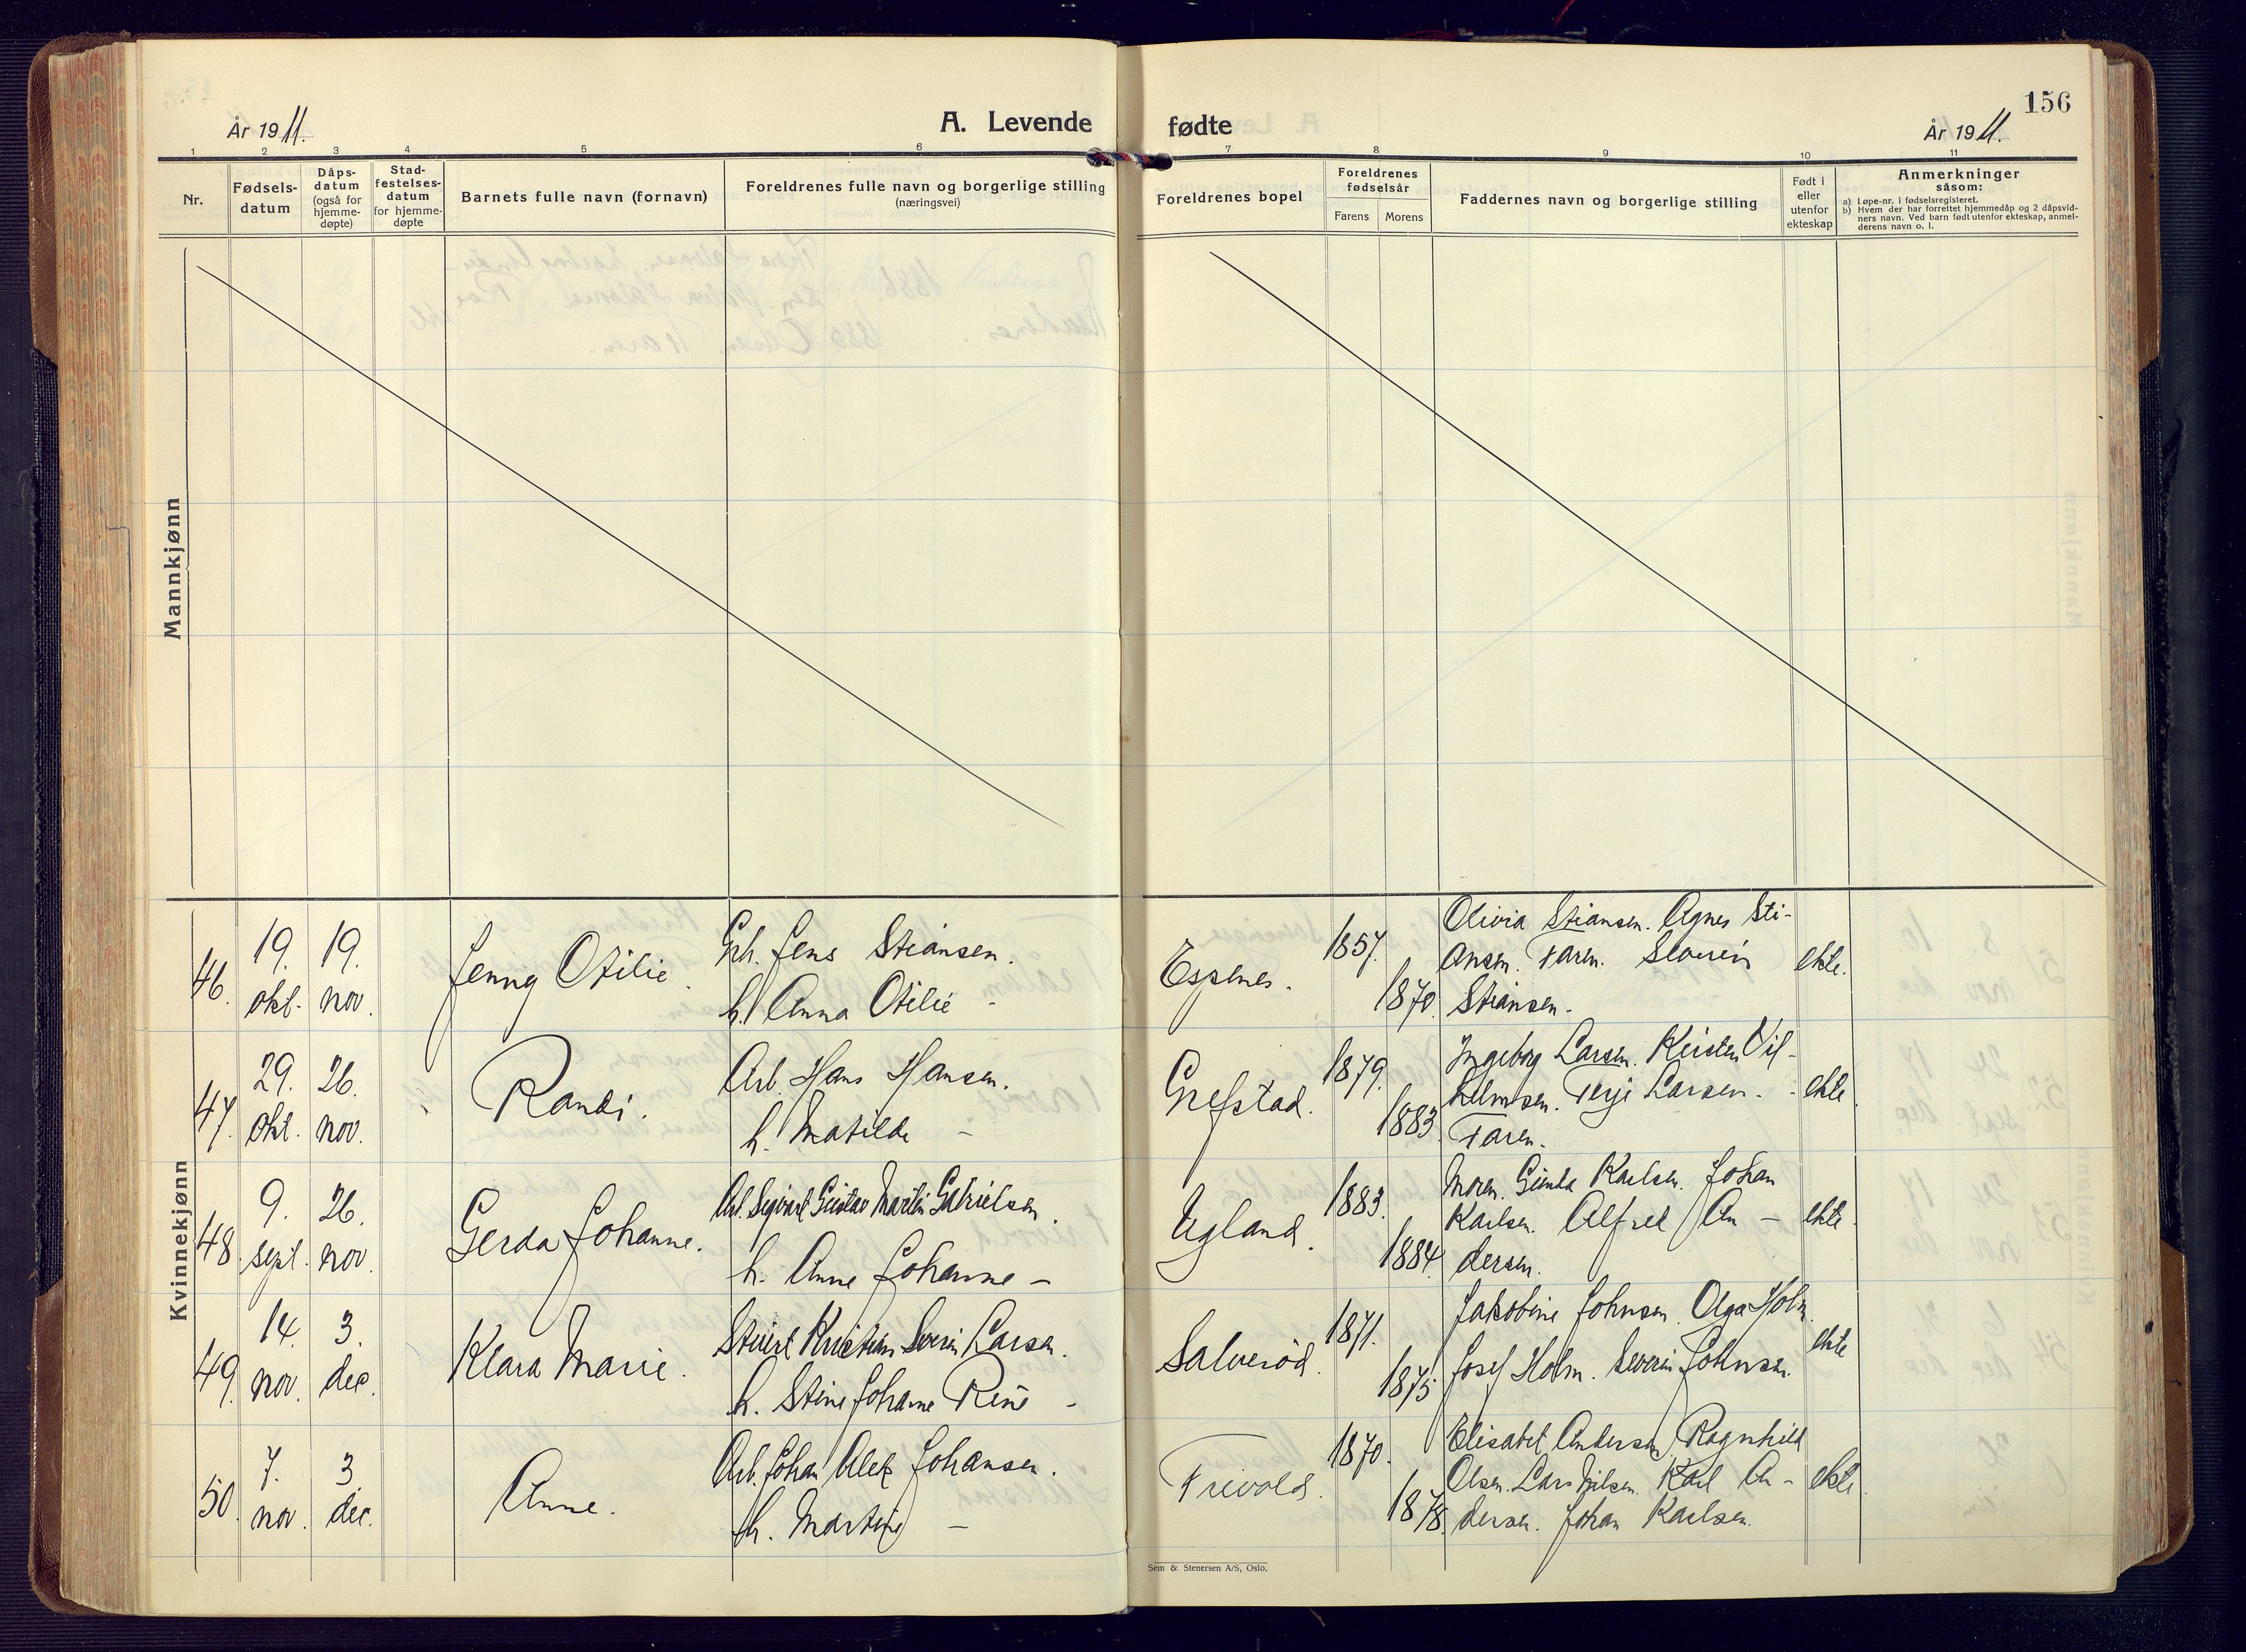 År 1911.
A. Levende
fødte
År 1911.
156
1 2 3 4 5 6 7 8 9 10 11
Nr.
Fødsels-
datum
Dåps-
datum
(også for
hjemme-
døpte)
Stad-
festelses-
datum
for hjemme-
døpte
Barnets fulle navn (fornavn)
Foreldrenes fulle navn og borgerlige stilling
(næringsvei)
Foreldrenes bopel
Foreldrenes
fødselsår
Farens
Morens
Faddernes navn og borgerlige stilling
Født i
eller
utenfor
ekteskap
Anmerkninger
såsom:
a) Løpe-nr. i fødselsregisteret.
b) Hvem der har forrettet hjemmedåp og 2 dåpsvid-
ners navn. Ved barn født utenfor ekteskap, anmel-
derens navn o. l.
Mannkjønn
Kvinnekjønn
46.
19. okt.
19. nov.
Jenny Otilie.
Jens Stiansen.
h. Anna Otilie -
Espenes.
1857.
1870.
Olivia Stiansen. Agnes Sti-
ansen. Faren. Severin
Stiansen.
ekte.
47.
29. okt.
26. nov.
Randi.
Arb. Hans Hansen.
h. Matilde -
Grefstad.
1879.
1883
Ingeborg Larsen. Kirsten Vil-
helmsen. Terje Larsen.
Faren.
ekte
48.
9. sept.
26. nov.
Gerda Johanne.
Arb. Sigvart Gustav Martin Gabrielsen.
h. Anne Johanne -
Ugland.
1883.
1884.
Moren. Gunda Karlsen. Johan
Karlsen. Alfred An-
dersen.
ekte.
49.
14. nov.
3. dec.
Klara Marie.
Stuert Kristian Severin Larsen.
h. Stine Johanne -
Salverød.
1871.
1875
Jakobine Johnsen. Olga Holm.
Josef Holm. Severin Johnsen.
ekte
50.
7. nov.
3 dec.
Anne.
Arb. Johan Alek Johansen.
h. Martine -
Frivold.
1870.
1878.
Elisabet Andersen Ragnhild
Olsen. Lars Nilsen. Karl An-
dersen. Johan Karlsen.
ekte.
Sem & Stenersen A/S, Oslo.